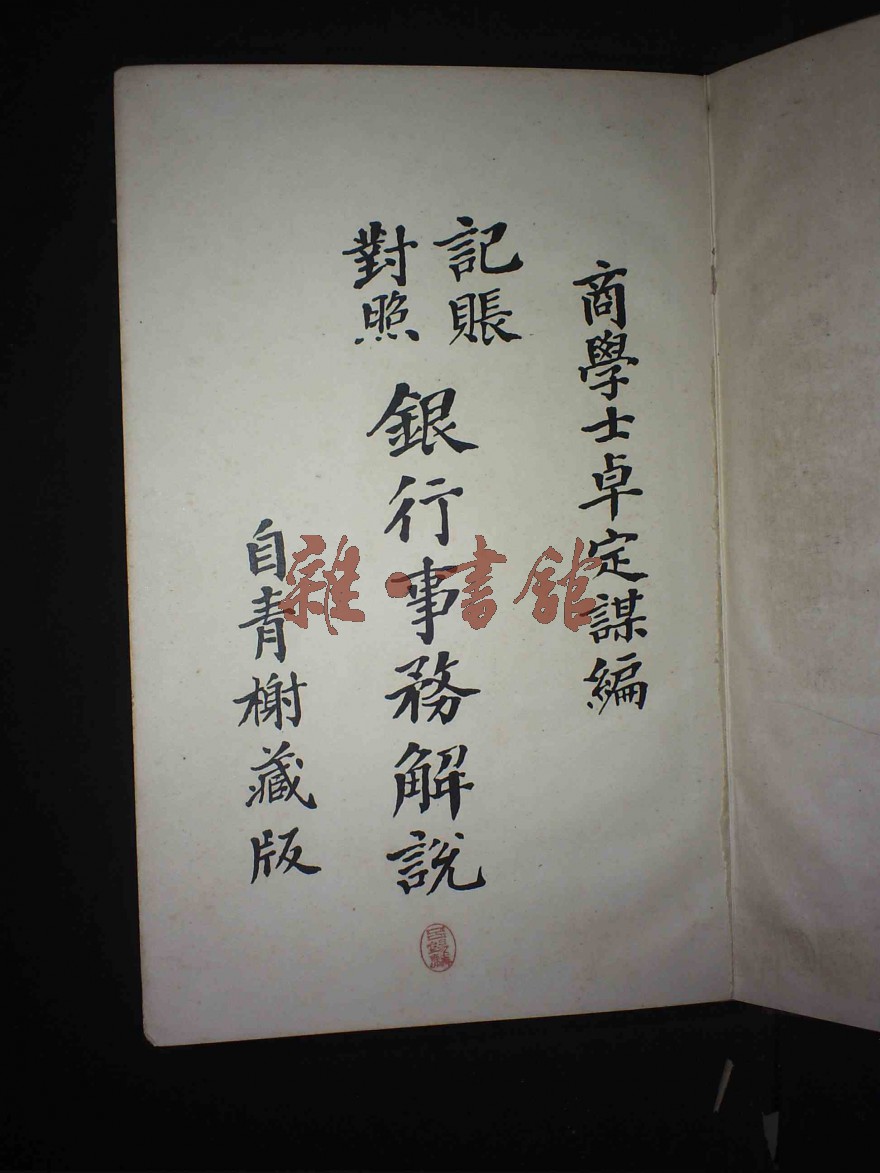 商學士卓定謀編
記賬
對照
銀行事務解說
自青榭藏版
雜書館